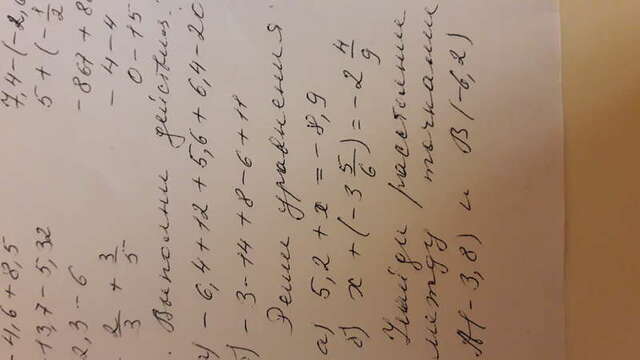 -4,6 + 8,5 7,4-(-2,6
-13,7 - 5,32 5 + (-1/2
2,3 - 6 -867 + 8
2/3 + 3/5 - 4 - 4
0 - 15
Выполни действия.
а) - 6,4 + 12 + 5,6 + 6,4 - 20
б) - 3 - 14 + 8 - 6 + 11
Реши уравнения
а) 5,2 + x = -8,9
б) x + (-3 5/6) = -2 4/9
Найди расстояние
между точками
A(-3,8) и B(-6,2)